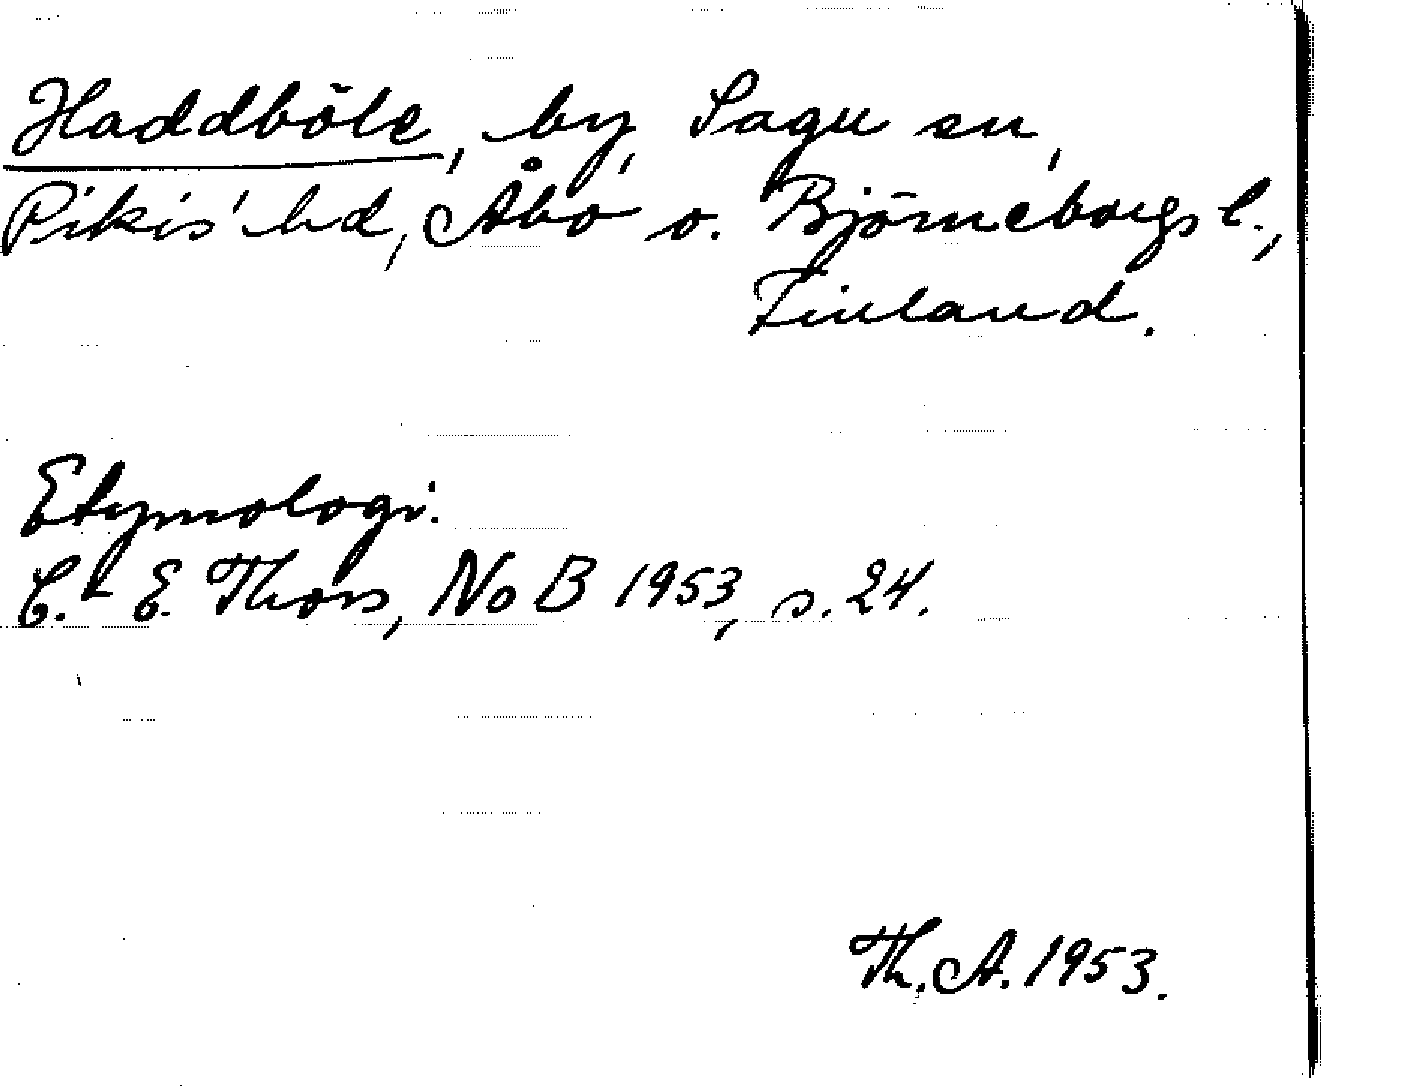 Haddböle, by, Sagu sn,
Pikis' hd, Åbo o. Björneborgs l.,
Finland.
Etymologi.
C.-E. Thors, NoB 1953, s. 24.
Th. A. 1953.